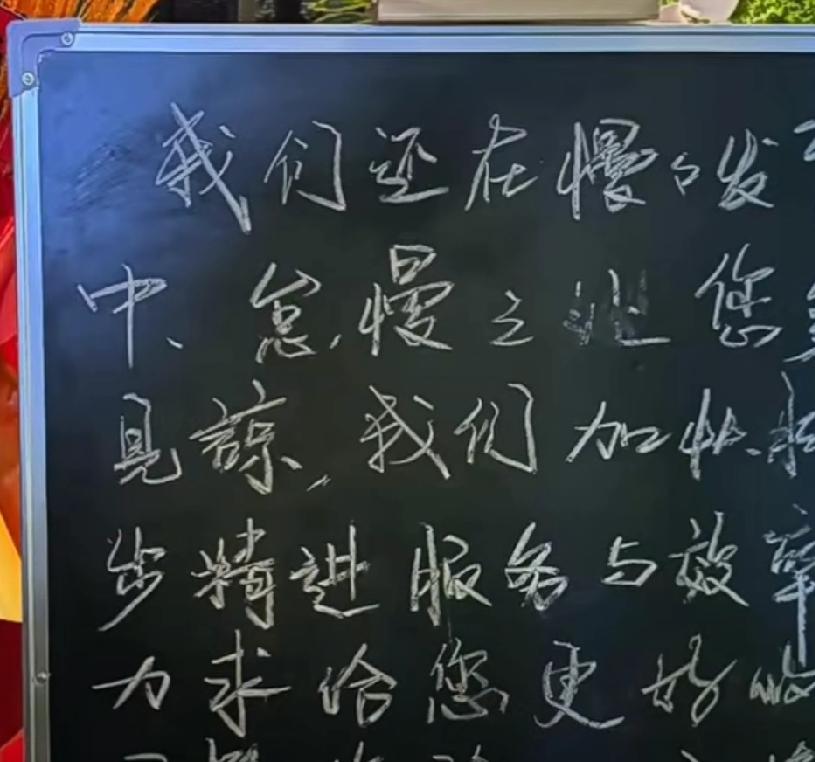 我们还在慢々发
中、怠慢之处 您
见谅,我们加快
步精进服务与效率
力求给您更好